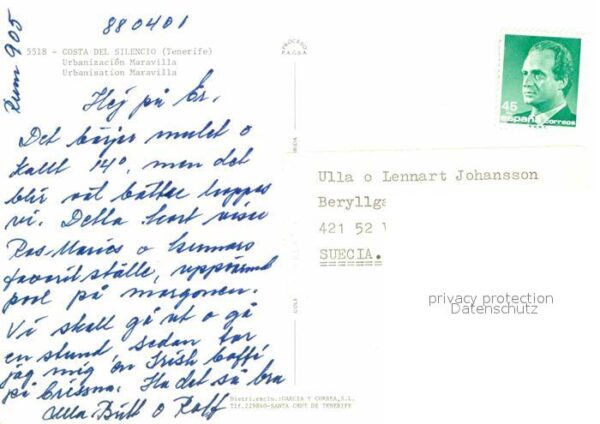 880401
Rum 905
5518 - COSTA DEL SILENCIO (Tenerife)
Urbanización Maravilla
Urbanisation Maravilla
Hej på Er.
Det börjar mulet o
kallt 14°, men det
blir väl bättre hoppas
vi. Detta kort visar
Ros-Maries o Gunnars
favoritställe, uppvärmd
pool på morgonen.
Vi skall gå ut o gå
en stund, sedan tar
jag mig en Irish Coffé,
på Ha det så bra
Britt o Rolf
45
españa correos
Ulla o Lennart Johansson
Beryllga
421 52 V
SUECIA.
privacy protection
Datenschutz
Distri.exclu.:GARCIA Y CORREA,S.L.
Tlf.229840-SANTA CRUZ DE TENERIFE